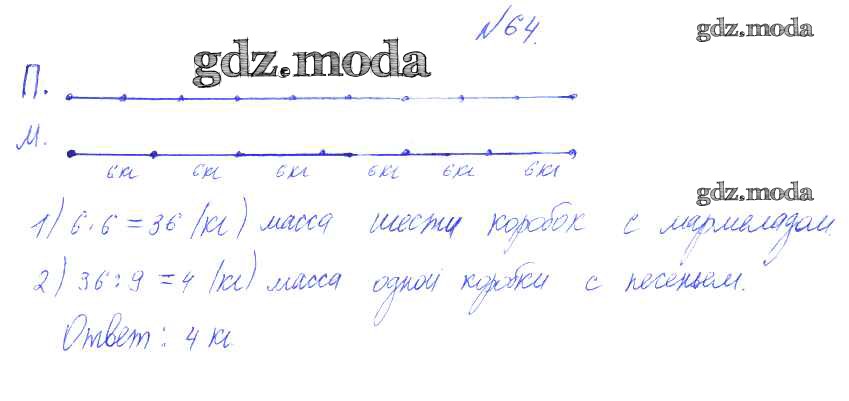 №64.
gdz.moda
gdz.moda
П.
М.
6 кг 6 кг 6 кг 6 кг 6 кг 6 кг
gdz.moda
1) 6·6=36 (кг) масса шести коробок с мармеладом.
2) 36:9=4 (кг) масса одной коробки с печеньем.
Ответ: 4 кг